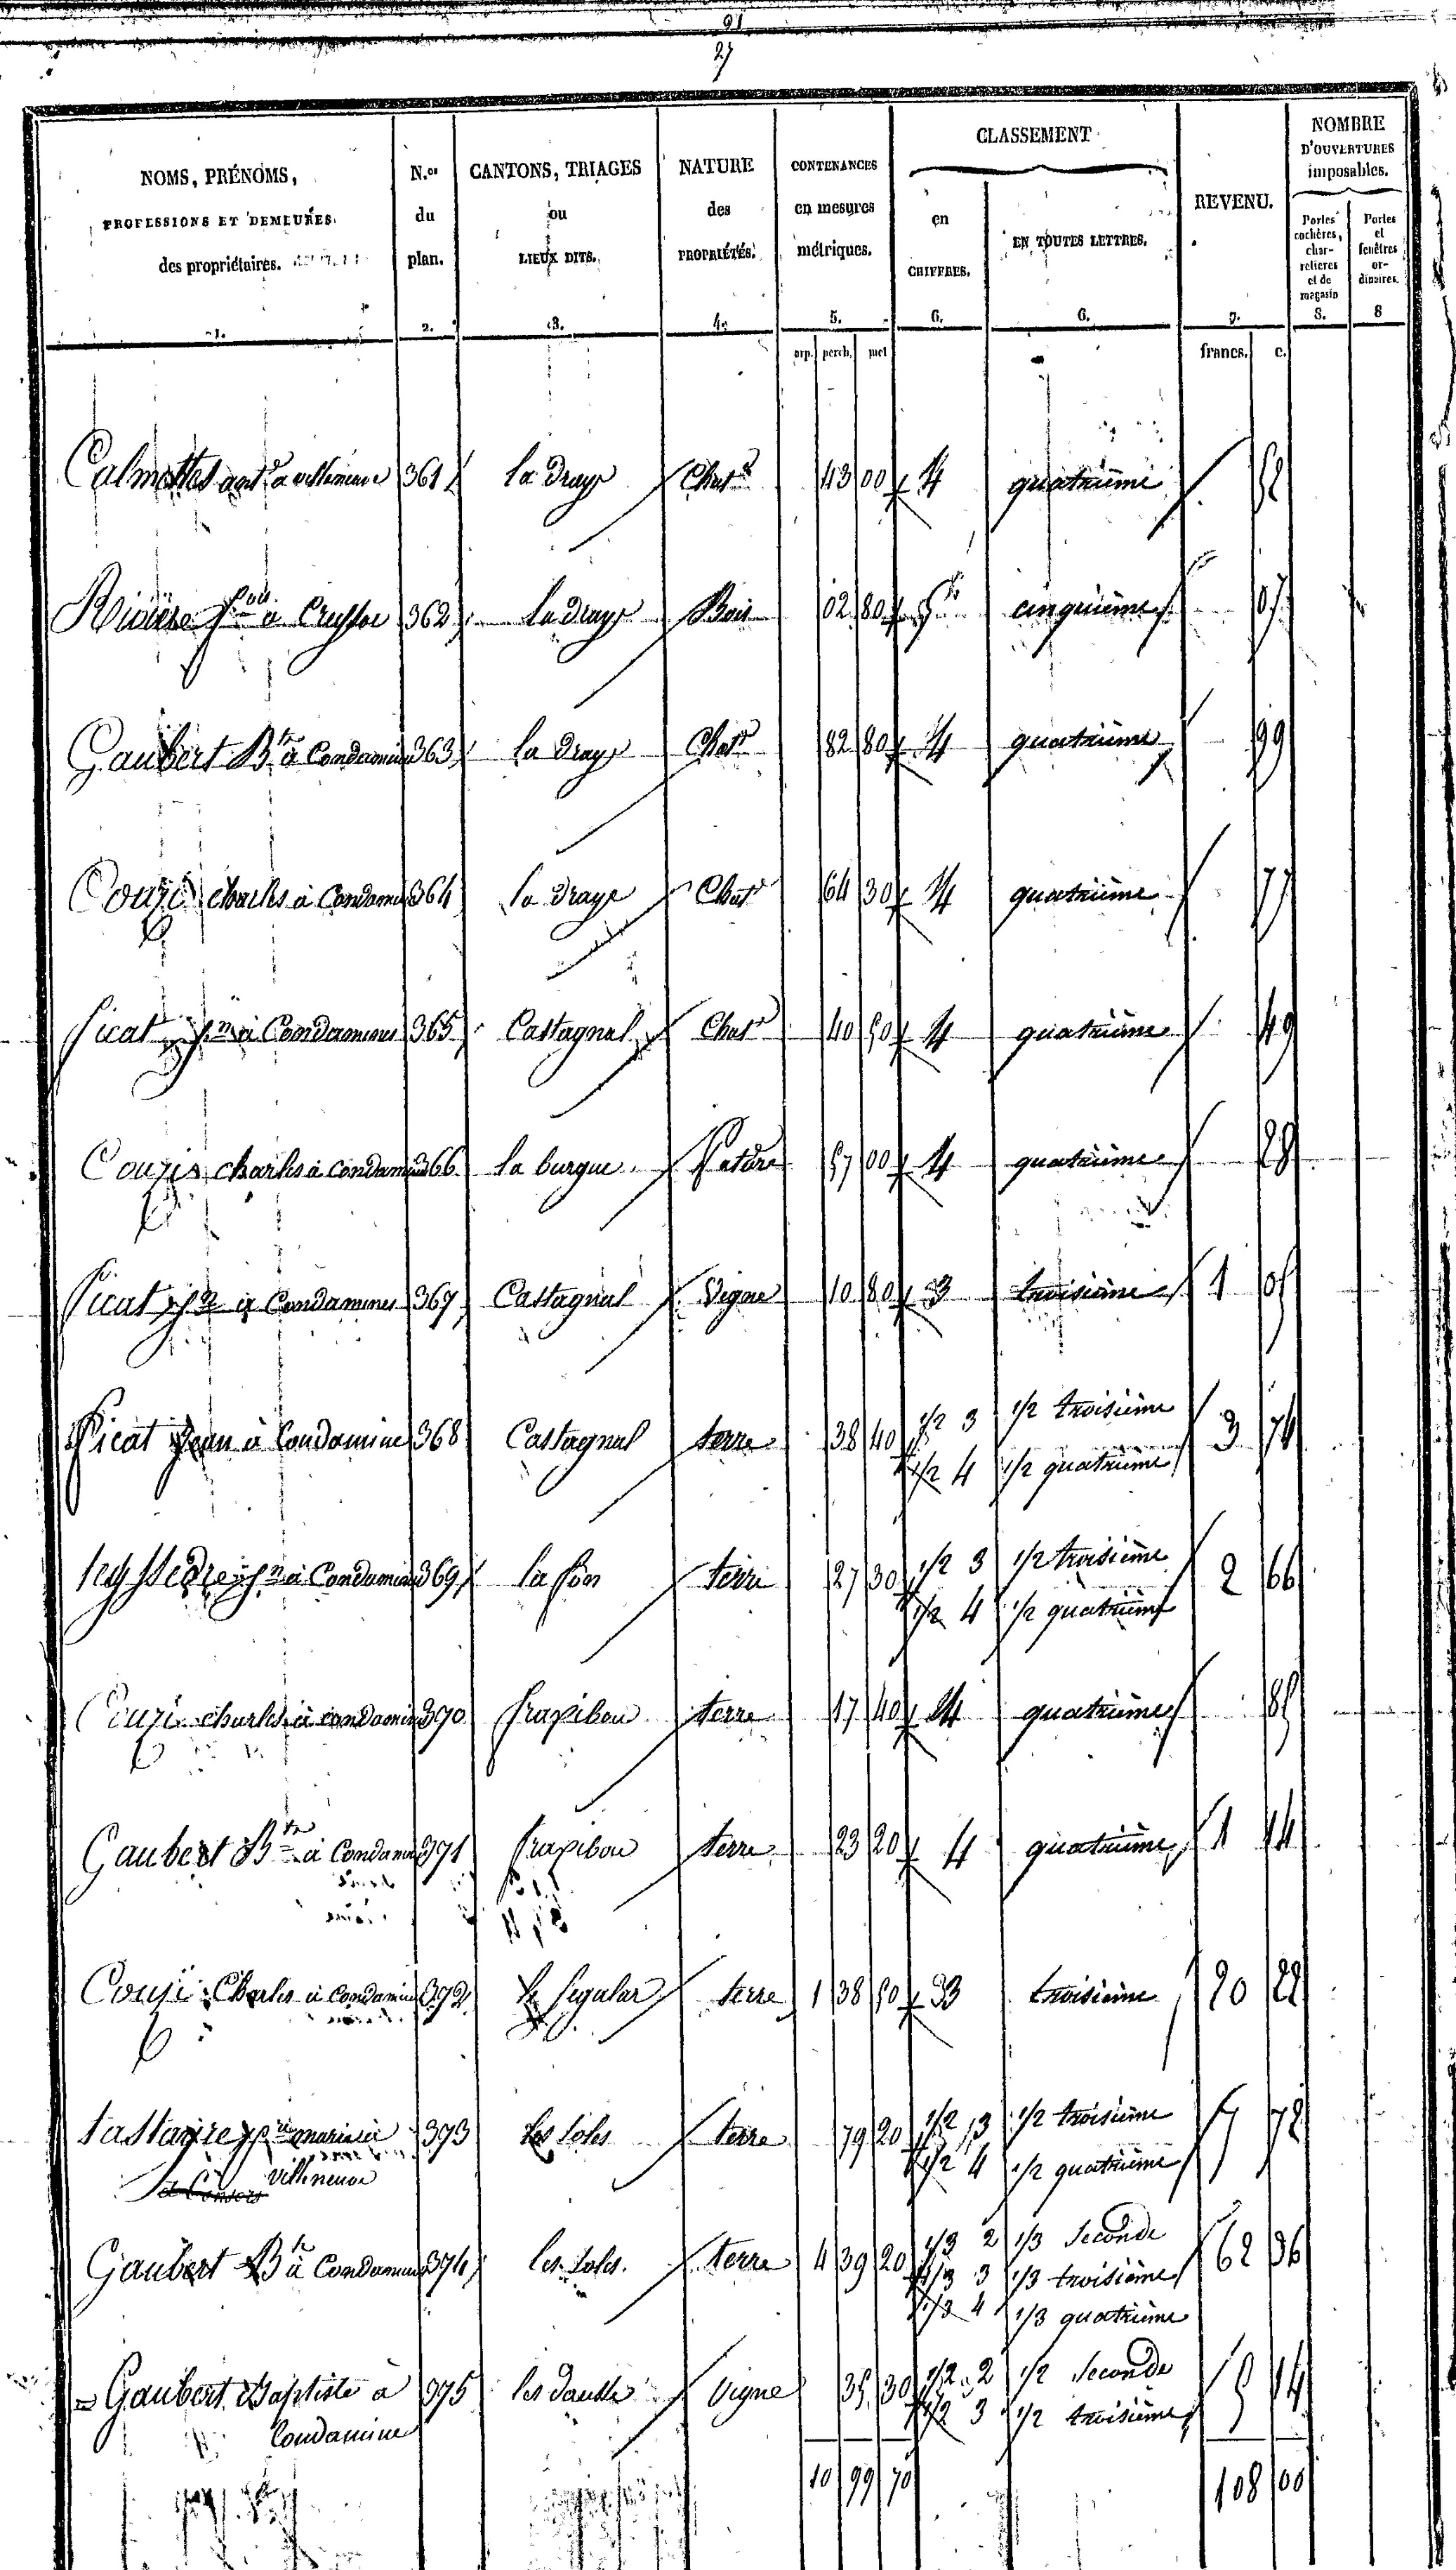 91
27
NOMS, PRÉNOMS, PROFESSIONS ET DEMEURES des propriétaires. 1.
N.os du plan. 2.
CANTONS, TRIAGES ou LIEUX DITS. 3.
NATURE des PROPRIÉTÉS. 4.
CONTENANCES en mesures métriques. 5.
CLASSEMENT
en CHIFFRES. 6.
EN TOUTES LETTRES. 6.
REVENU. 7.
NOMBRE D'OUVERTURES imposables.
Portes cochères, charretières et de magasin 8.
Portes et fenêtres ordinaires. 8
arp. perch. met francs. c.
Calmettes ant à villeneuve 361 la Draye Chat 43 00 4 quatrième 52
Rivière à Cruyssе 362 la Draye Bois 02 80 5 cinquième 07
Gaubert Bte à Condamine 363 la Draye Chat 82 80 4 quatrième 99
Couzi charles à Condamine 364 la Draye Chat 64 30 4 quatrième 77
Picat à Condamines 365 Castagnal Chat 40 50 4 quatrième 49
Couzis charles à Condamine 366 la burgue Pature 57 00 4 quatrième 29
Picat à Condamines 367 Castagnal Vigne 10 80 3 troisième 1 05
Picat Jean à Condamine 368 Castagnal terre 38 40 1/2 3 1/2 troisième 3 74
1/2 4 1/2 quatrième
à Condamine 369 la fon terre 27 30 1/2 3 1/2 troisième 2 66
1/2 4 1/2 quatrième
Couzi charles à condamine 370 frapibou terre 17 40 4 quatrième 85
Gaubert Bte à Condamine 371 frapibou terre 23 20 4 quatrième 1 14
Couzi Charles à condamine 372 le Segalar terre 1 38 50 3 troisième 20 22
tastayre marinier 373 les soles terre 79 20 1/2 3 1/2 troisième 7 72
Villeneuve 1/2 4 1/2 quatrième
Gaubert Bte à Condamine 374 les soles terre 4 39 20 1/3 2 1/3 Seconde 62 36
1/3 3 1/3 troisième
1/3 4 1/3 quatrième
Gaubert Baptiste à 375 vigne 35 30 1/2 2 1/2 Seconde 5 14
Condamine 1/2 3 1/2 troisième
10 99 70 108 00